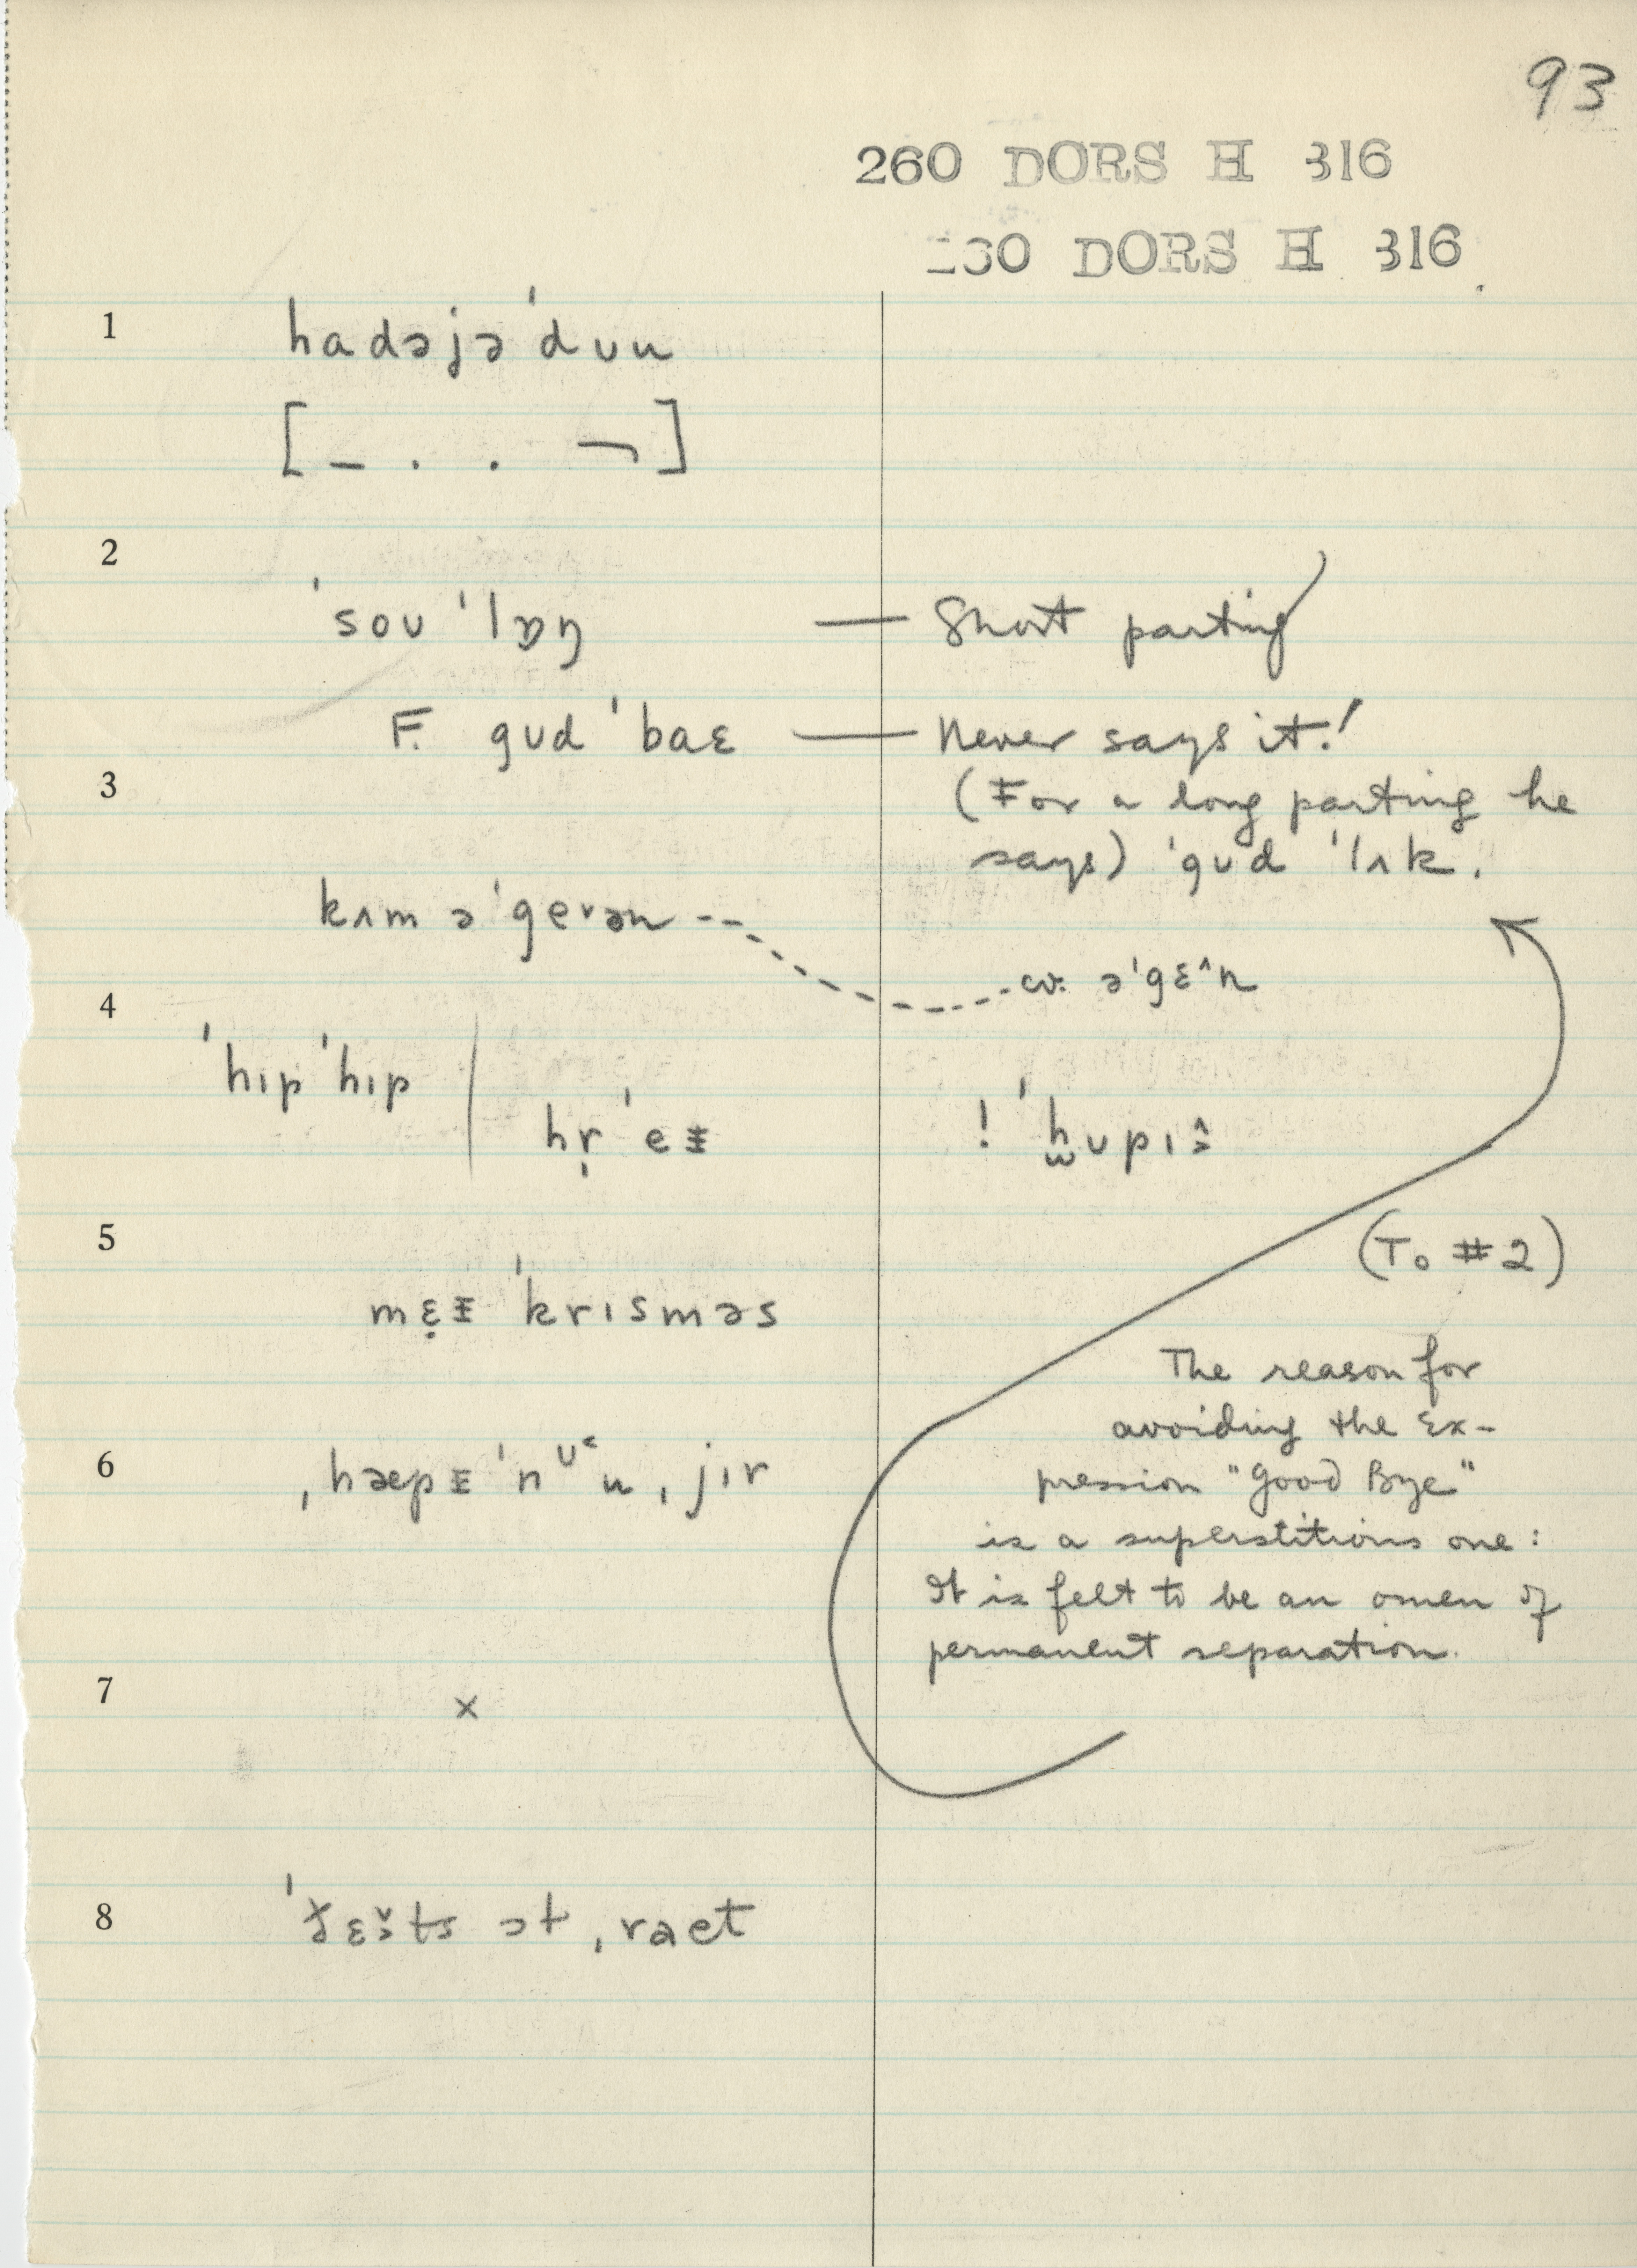 93
260 DORS H 316
260 DORS H 316
1
hadəjə'dʊu
[ _ . . ¬ ]
2
'soʊ 'lɒŋ — Short parting
F. gʊd 'baɛ — Never says it!
3
(For a long parting he
says) 'gʊd 'lʌk.
kʌm ə'geᵛən
cv. ə'gɛ^n
4
'hɪp 'hɪp | hṛ'eɪ
! 'hʊpɪ
5
(To #2)
mɛɪ 'krɪsməs
The reason for
avoiding the ex-
6
ˌhæpɪ 'nᶷu ˌjɪr
pression "Good Bye"
is a superstitious one:
It is felt to be an omen of
permanent separation.
7
x
8
ət ˌraet